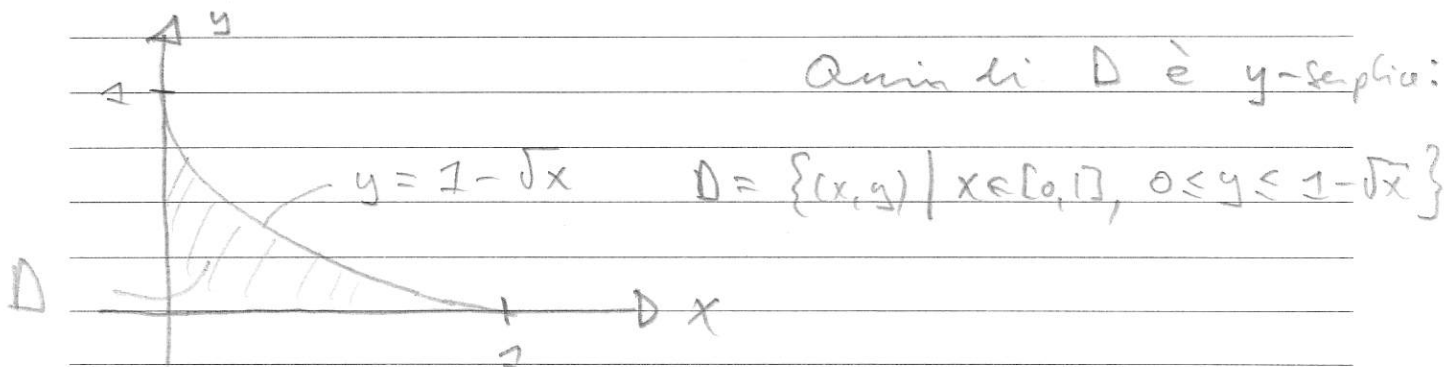 y
Quindi D è y-semplice:
1
y = 1 - √x
D = {(x,y) | x ∈ [0,1], 0 ≤ y ≤ 1 - √x}
D
x
1